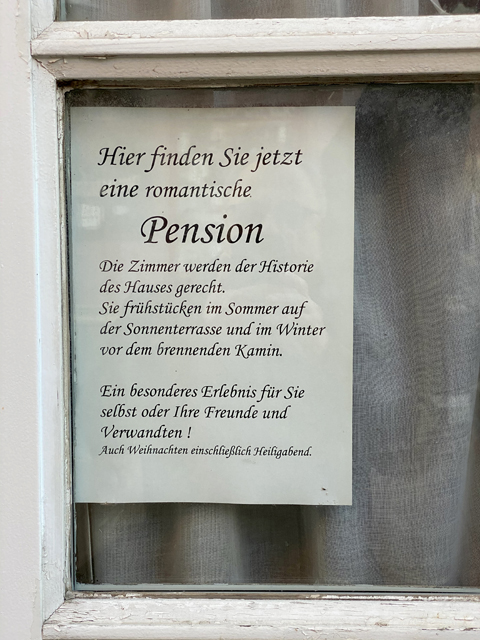 Hier finden Sie jetzt
eine romantische
Pension
Die Zimmer werden der Historie
des Hauses gerecht.
Sie frühstücken im Sommer auf
der Sonnenterrasse und im Winter
vor dem brennenden Kamin.
Ein besonderes Erlebnis für Sie
selbst oder Ihre Freunde und
Verwandten !
Auch Weihnachten einschließlich Heiligabend.